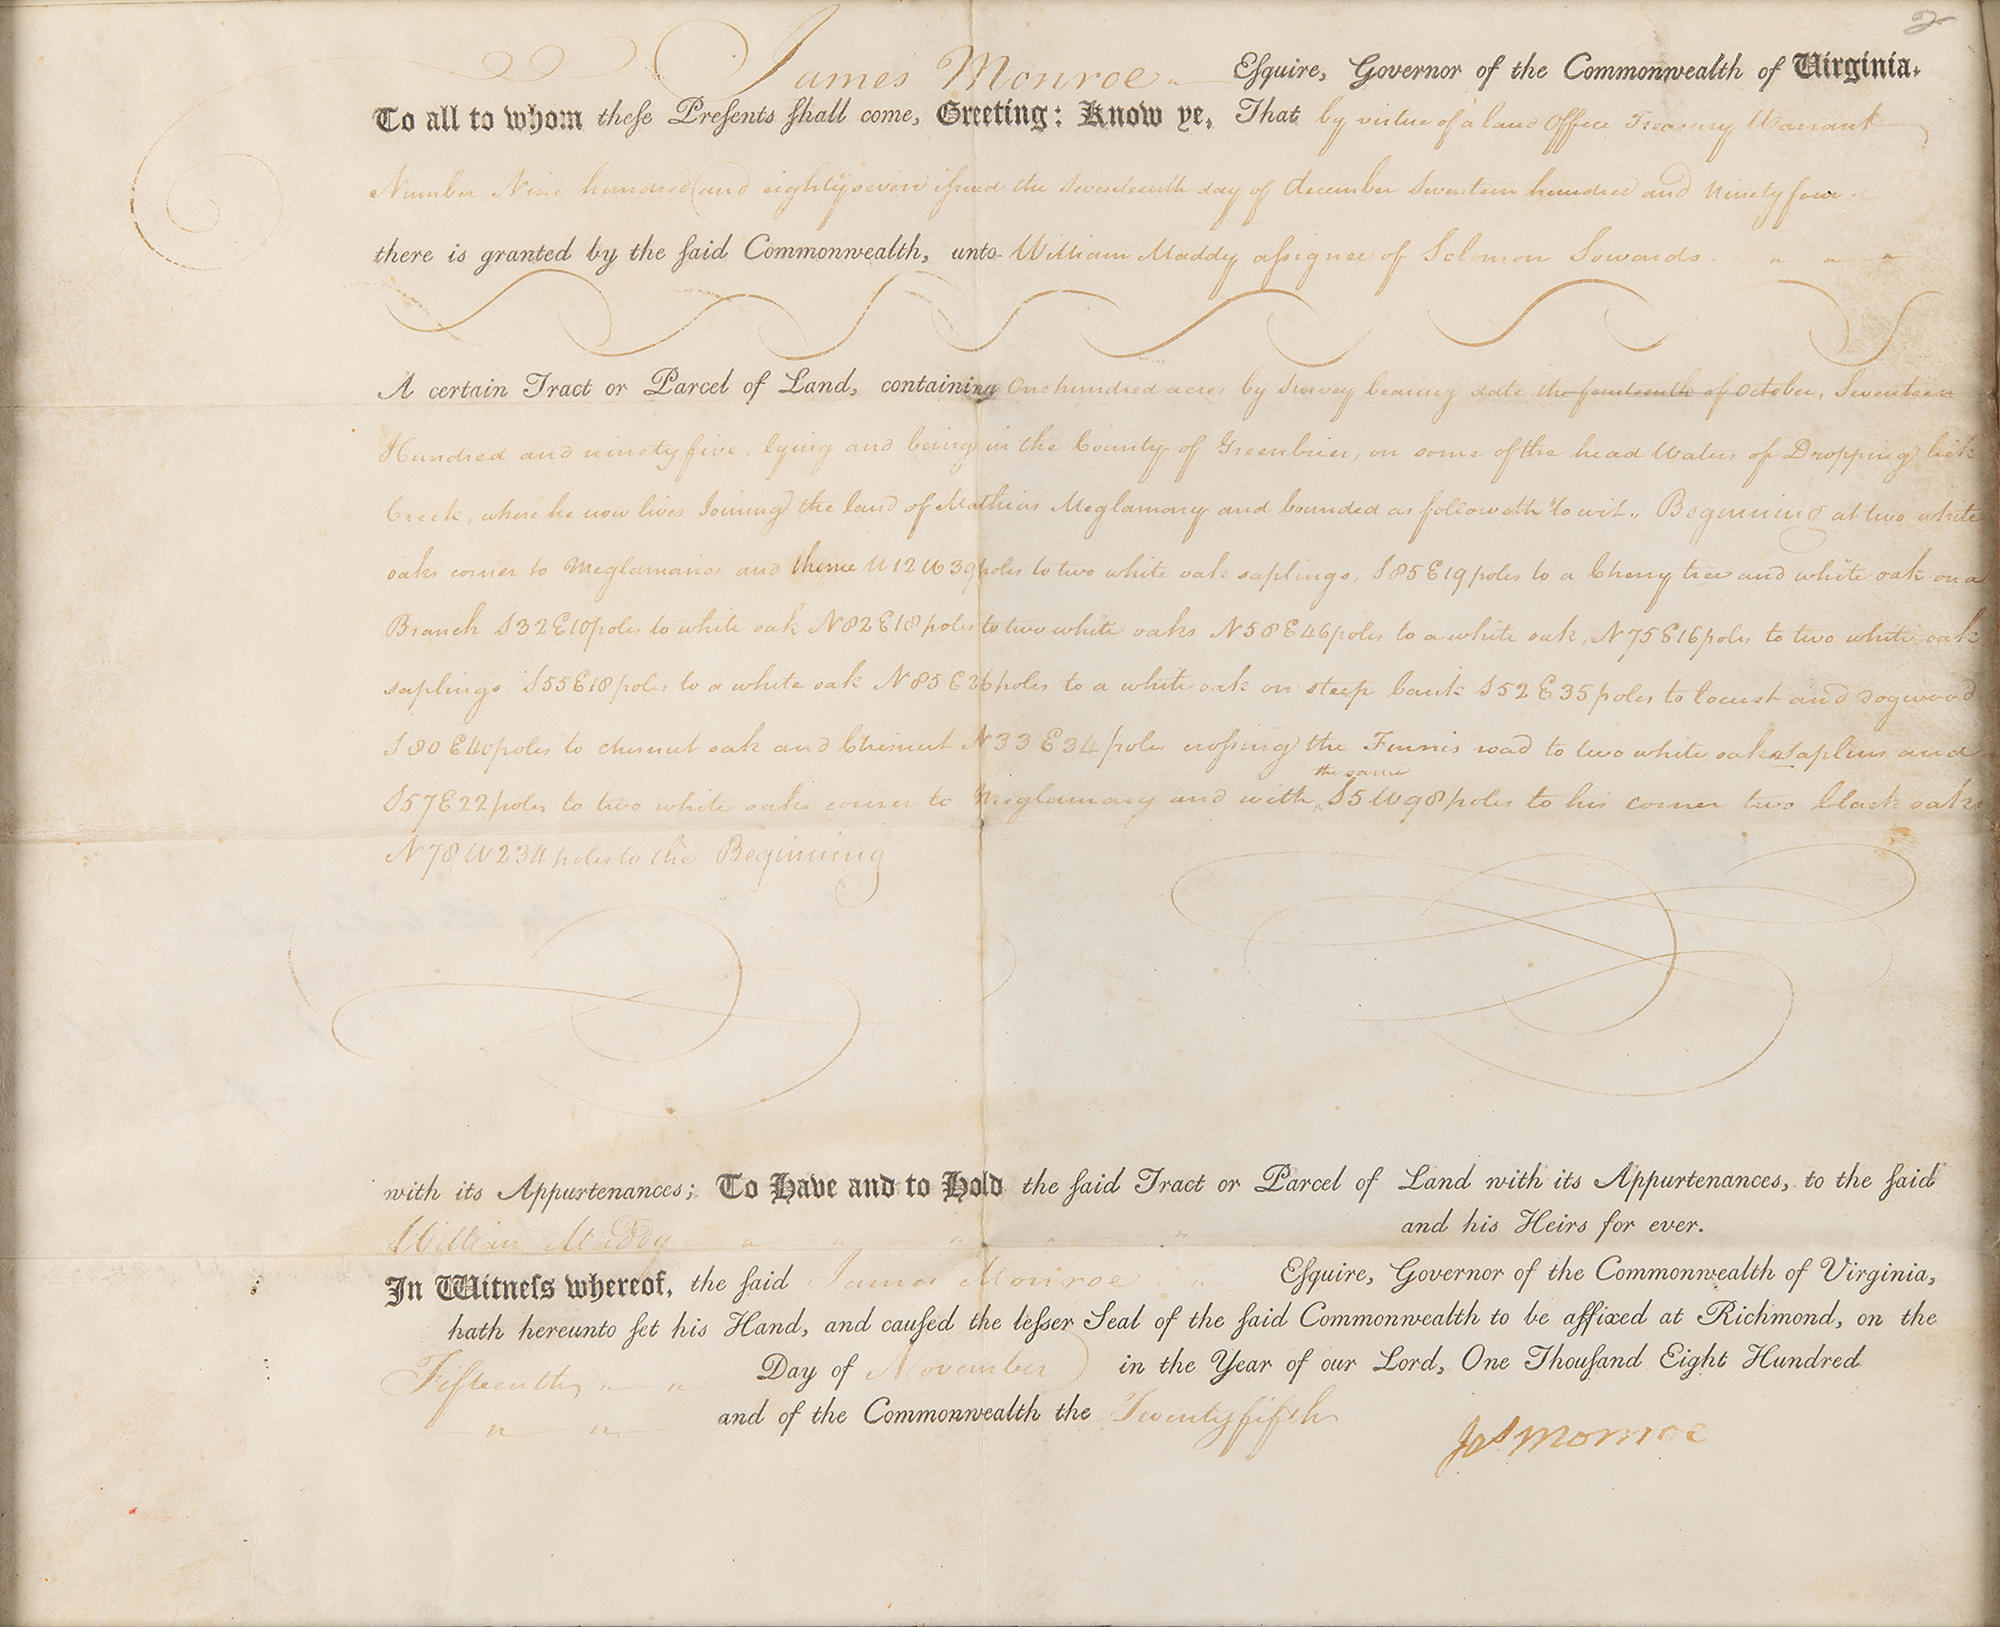 2
James Monroe " Esquire, Governor of the Commonwealth of Virginia.
To all to whom these Presents shall come, Greeting: Know ye, That by virtue of a land Office Treasury Warrant
Number Nine hundred and eighty seven issued the seventeenth day of december seventeen hundred and Ninety four.
there is granted by the said Commonwealth, unto William Maddy assignee of Solomon Sowards " " "
A certain Tract or Parcel of Land, containing One hundred acres by survey bearing date the fourteenth of October, Seventeen
Hundred and ninety five, lying and being in the County of Greenbrier, on some of the head Waters of Dropping lick
Creek, where he now lives Joining the land of Mathias Meglamary and bounded as followeth to wit,, Beginning at two white
oaks corner to Meglamaries and thence N 12 W 39 poles to two white oak saplings, S 85 E 19 poles to a Cherry tree and white oak on a
Branch S 32 E 10 poles to white oak N 82 E 18 poles to two white oaks N 58 E 46 poles to a white oak, N 75 E 16 poles to two white oak
saplings S 55 E 18 poles to a white oak N 85 E 26 poles to a white oak on steep bank S 52 E 35 poles to locust and dogwood
S 80 E 40 poles to chesnut oak and Chesnut N 33 E 34 poles crossing the road to two white oak saplins and
S 57 E 22 poles to two white oaks corner to Meglamary and with the same S 5 W 98 poles to his corner two black oaks
N 78 W 234 poles to the Beginning
with its Appurtenances; To Have and to Hold the said Tract or Parcel of Land with its Appurtenances, to the said
William Maddy " " " " " and his Heirs for ever.
In Witness whereof, the said James Monroe " Esquire, Governor of the Commonwealth of Virginia,
hath hereunto set his Hand, and caused the lesser Seal of the said Commonwealth to be affixed at Richmond, on the
Fifteenth " " Day of November in the Year of our Lord, One Thousand Eight Hundred
" " and of the Commonwealth the Twenty fifth
Jas Monroe